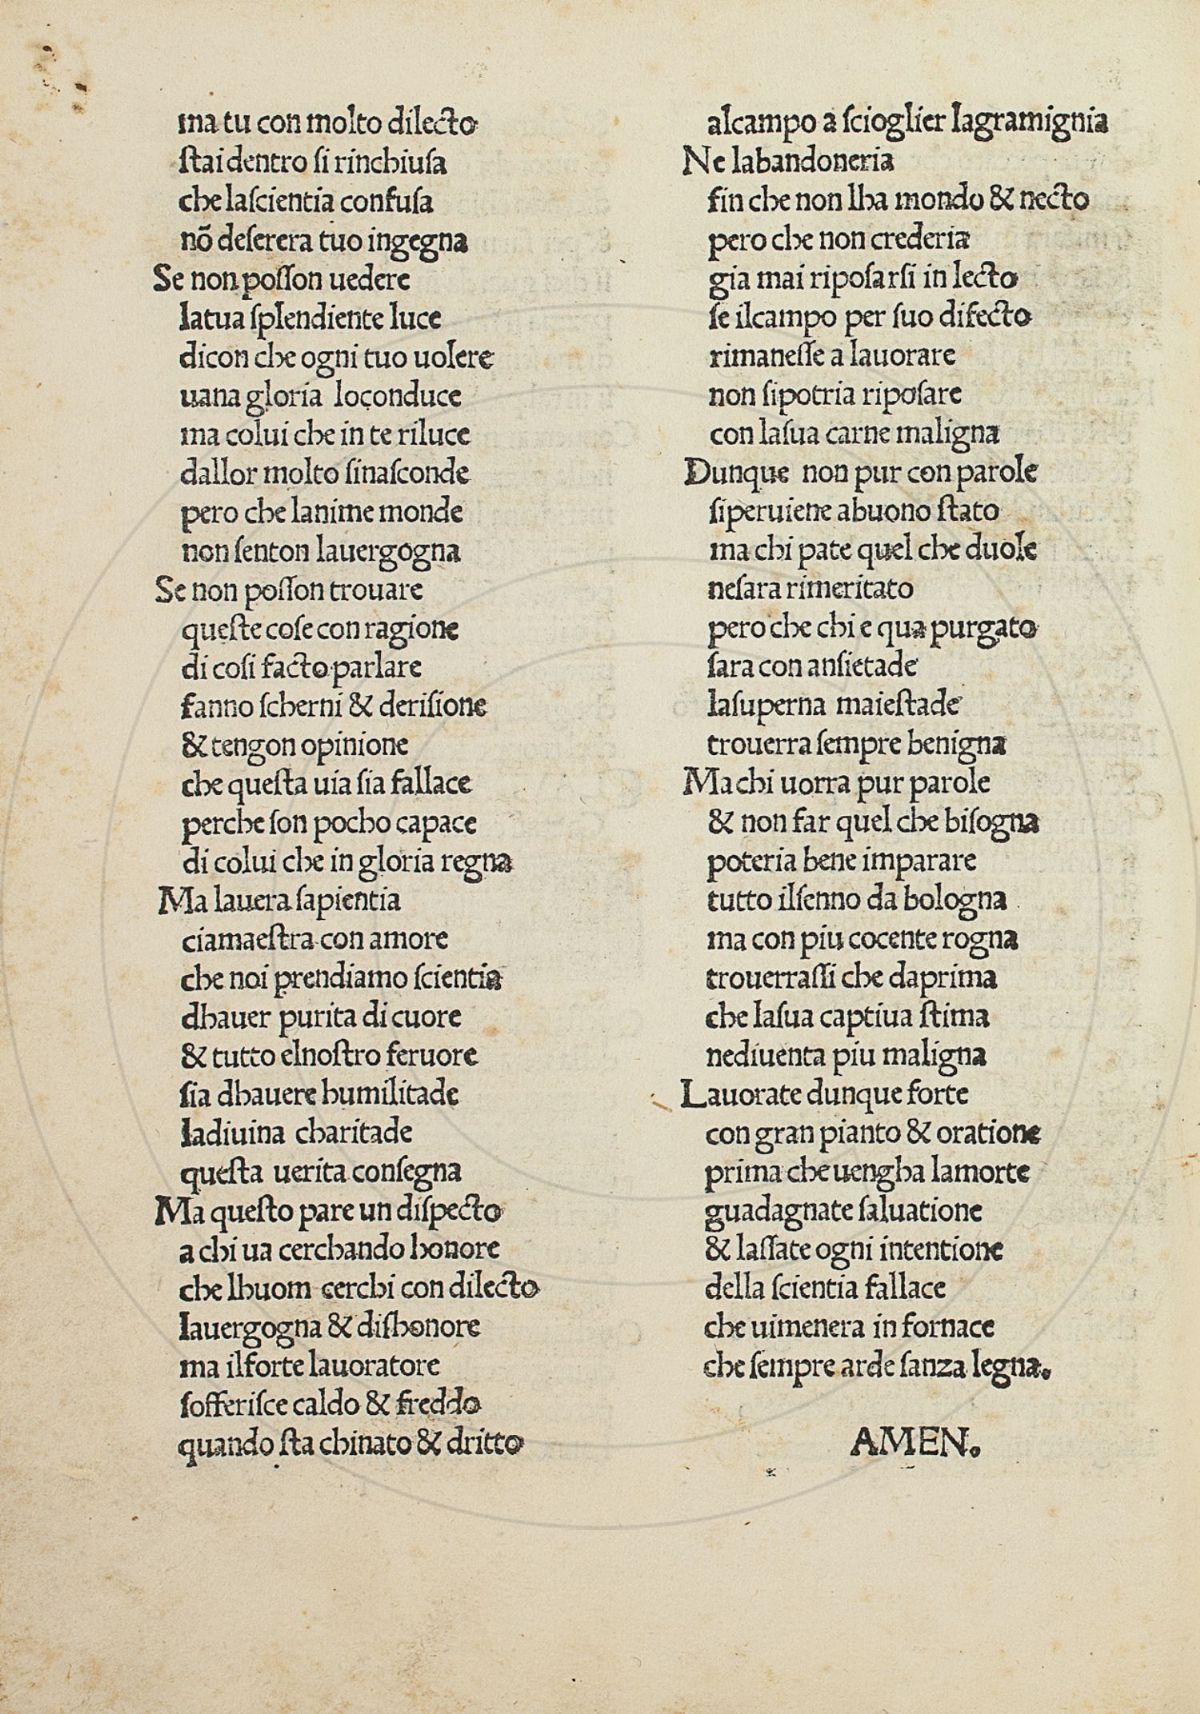 ma tu con molto dilecto
ſtai dentro ſi rinchiuſa
che laſcientia confuſa
nõ deſerera tuo ingegna
Se non poſſon uedere
latua ſplendiente luce
dicon che ogni tuo uolere
uana gloria loconduce
ma colui che in te riluce
dallor molto ſinaſconde
pero che lanime monde
non ſenton lauergogna
Se non poſſon trouare
queſte coſe con ragione
di coſi facto parlare
fanno ſcherni & deriſione
& tengon opinione
che queſta uia ſia fallace
perche ſon pocho capace
di colui che in gloria regna
Ma lauera ſapientia
ciamaeſtra con amore
che noi prendiamo ſcientia
dhauer purita di cuore
& tutto elnoſtro feruore
ſia dhauere humilitade
ladiuina charitade
queſta uerita conſegna
Ma queſto pare un diſpecto
a chi ua cerchando honore
che lhuom cerchi con dilecto
lauergogna & diſhonore
ma ilforte lauoratore
ſofferiſce caldo & freddo
quando ſta chinato & dritto
alcampo a ſcioglier lagramignia
Ne labandoneria
fin che non lha mondo & necto
pero che non crederia
gia mai ripoſarſi in lecto
ſe ilcampo per ſuo difecto
rimaneſſe a lauorare
non ſipotria ripoſare
con laſua carne maligna
Dunque non pur con parole
ſiperuiene abuono ſtato
ma chi pate quel che duole
neſara rimeritato
pero che chi e qua purgato
ſara con anſietade
laſuperna maieſtade
trouerra ſempre benigna
Ma chi uorra pur parole
& non far quel che biſogna
poteria bene imparare
tutto ilſenno da bologna
ma con piu cocente rogna
trouerraſſi che daprima
che laſua captiua ſtima
nediuenta piu maligna
Lauorate dunque forte
con gran pianto & oratione
prima che uengha lamorte
guadagnate ſaluatione
& laſſate ogni intentione
della ſcientia fallace
che uimenera in fornace
che ſempre arde ſanza legna.
AMEN.